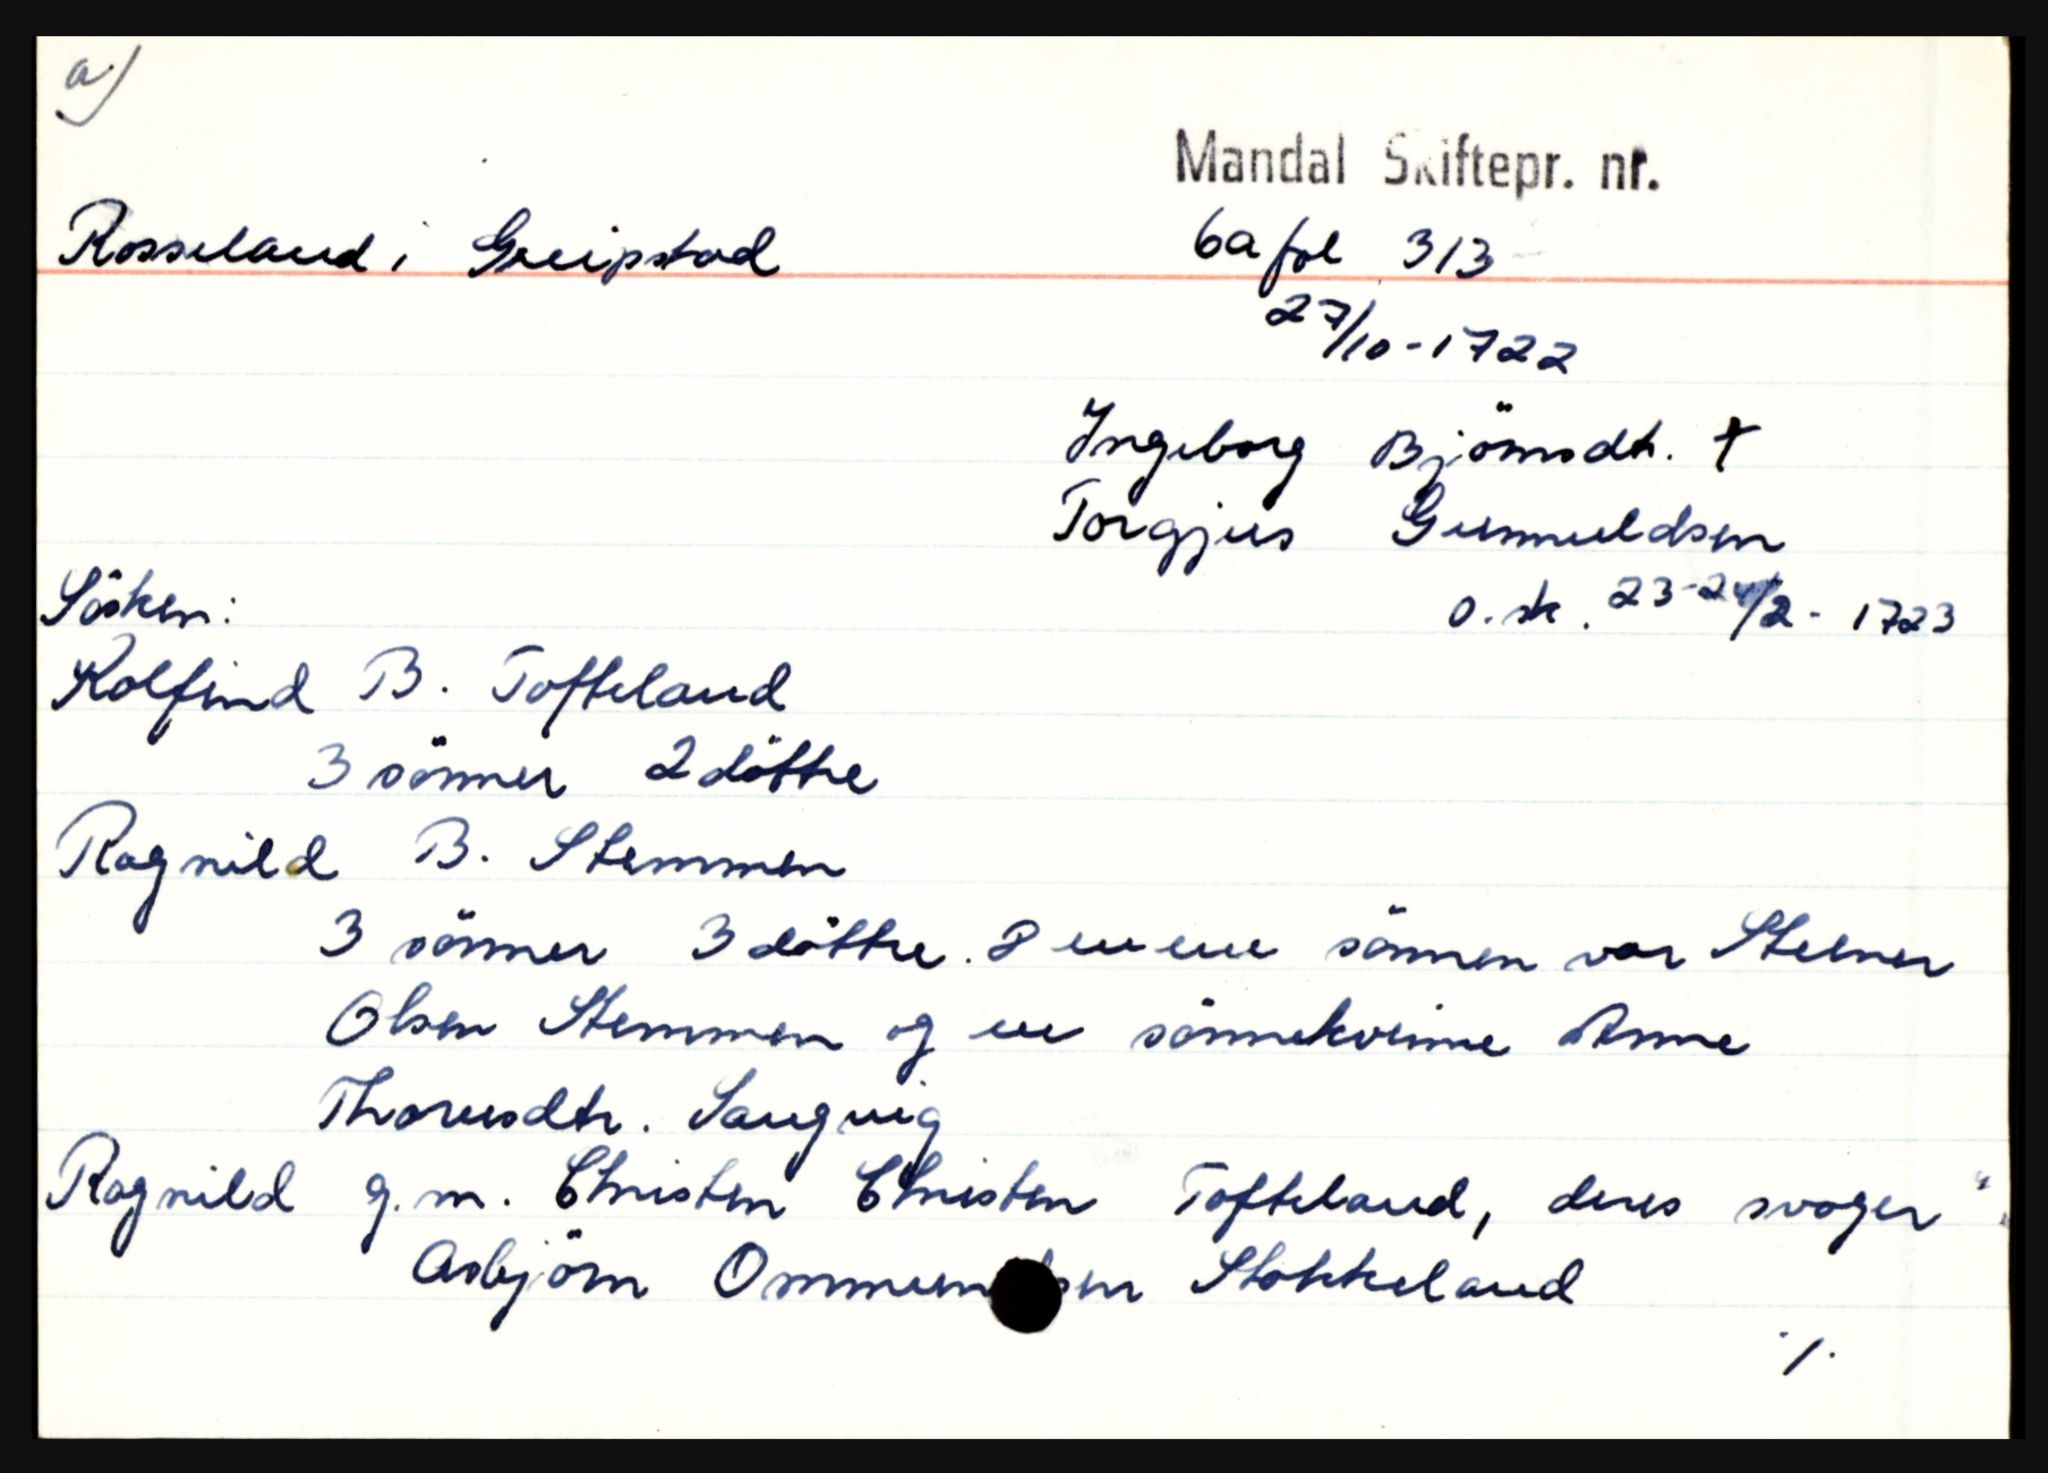 a)
Mandal Skiftepr. nr.
Rosseland i Greipstad
6a fol 313
27/10-1722
Ingeborg Björnsdtr. +
Torgjus Gunnuldsen
o. sk. 23-24/2-1723
Sösken:
Kolfind B. Tofteland
3 sönner 2 döttre
Ragnild B. Stemmen
3 sönner 3 döttre. sönnen var Steener
Olsen Stemmen og en sönnekvinne Anne
Thoresdtr. Saugvig
Ragnild g.m. Christen Christen Tofteland, deres svoger
Asbjörn Ommundsen Stokkeland
./.